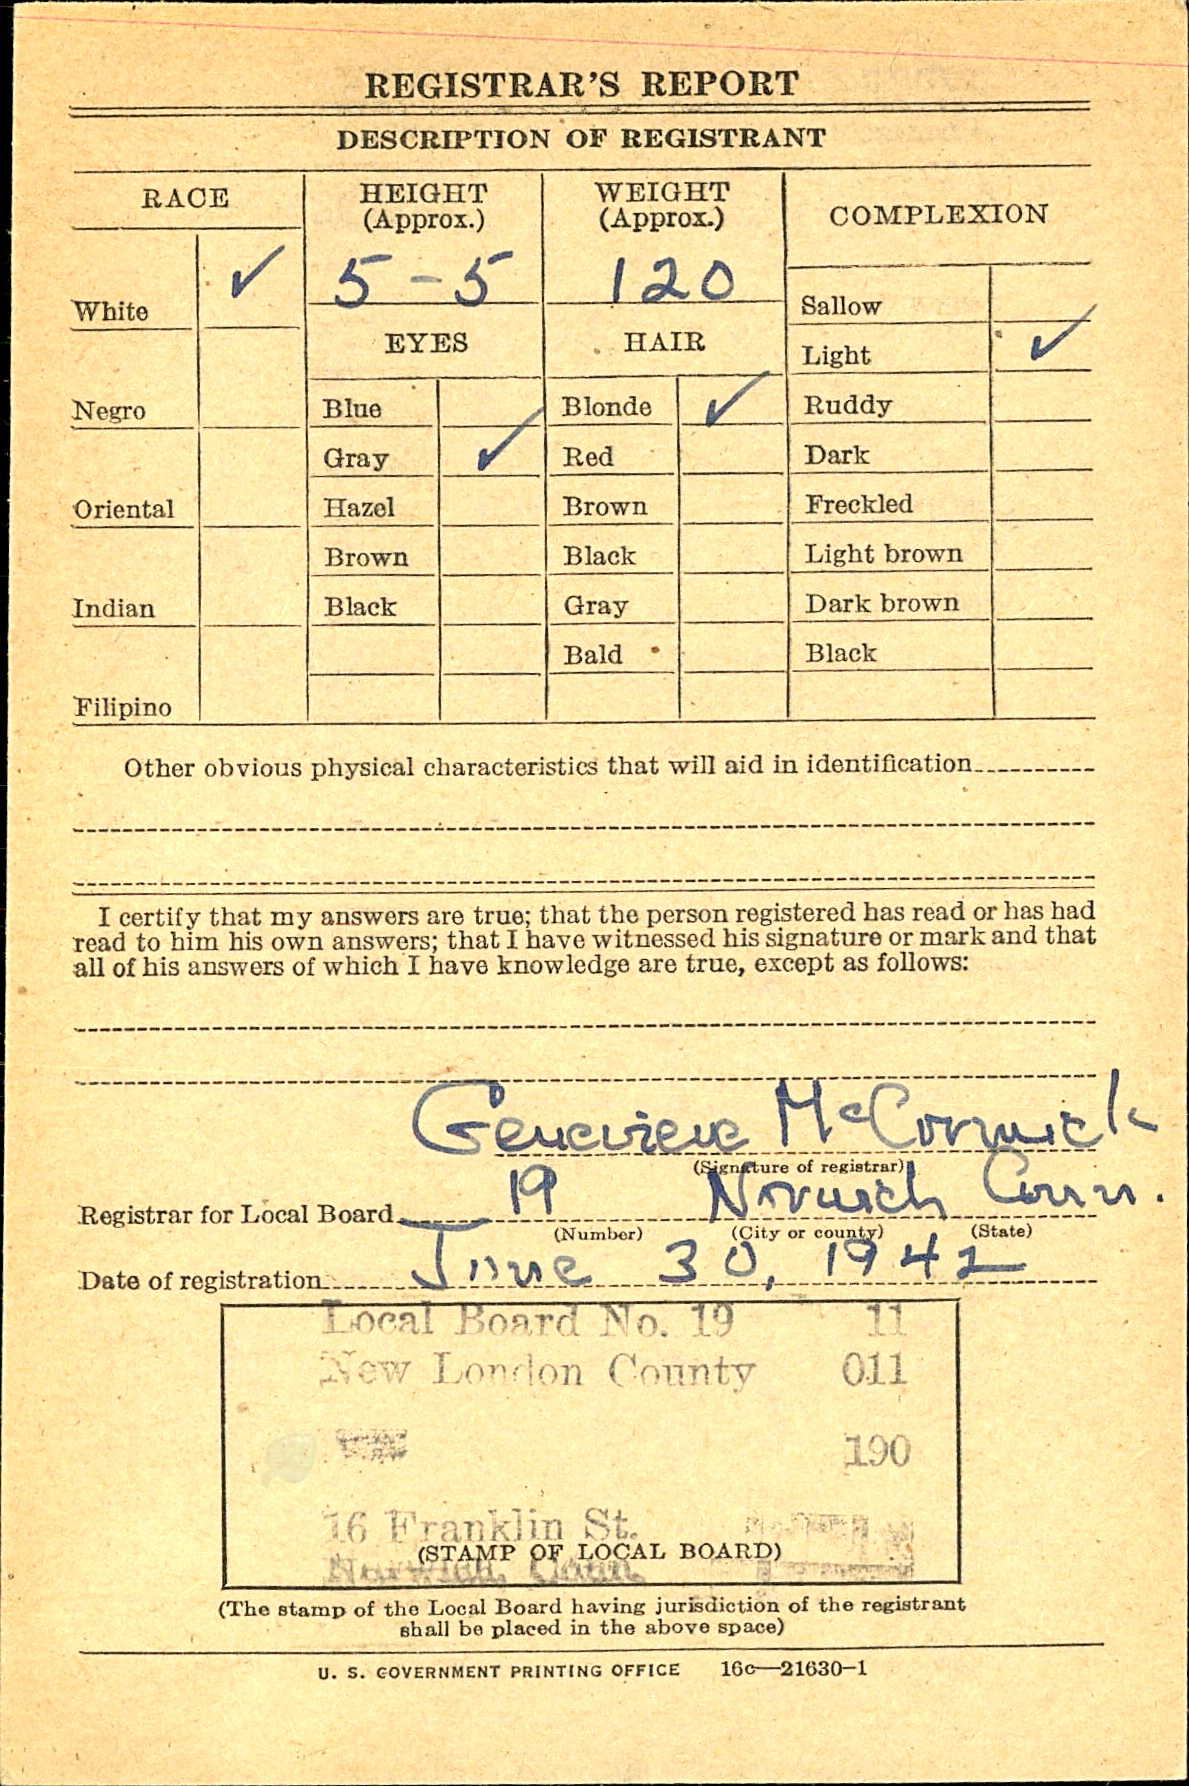 REGISTRAR'S REPORT
DESCRIPTION OF REGISTRANT
RACE
HEIGHT
(Approx.)
WEIGHT
(Approx.)
COMPLEXION
White ✓
5-5
120
Sallow
EYES
HAIR
Light ✓
Negro
Blue
Blonde ✓
Ruddy
Gray ✓
Red
Dark
Oriental
Hazel
Brown
Freckled
Brown
Black
Light brown
Indian
Black
Gray
Dark brown
Bald
Black
Filipino
Other obvious physical characteristics that will aid in identification
I certify that my answers are true; that the person registered has read or has had
read to him his own answers; that I have witnessed his signature or mark and that
all of his answers of which I have knowledge are true, except as follows:
Genevieve McCormick
(Signature of registrar)
Registrar for Local Board 19 Norwich Conn.
(Number) (City or county) (State)
Date of registration June 30, 1942
Local Board No. 19 11
New London County 011
190
16 Franklin St.
(STAMP OF LOCAL BOARD)
Norwich, Conn.
(The stamp of the Local Board having jurisdiction of the registrant
shall be placed in the above space)
U. S. GOVERNMENT PRINTING OFFICE 16c—21630-1